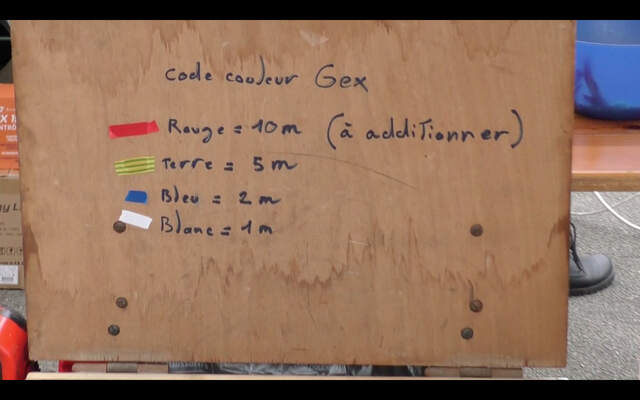 code couleur Gex
Rouge = 10 m (à additionner)
Terre = 5 m
Bleu = 2 m
Blanc = 1 m